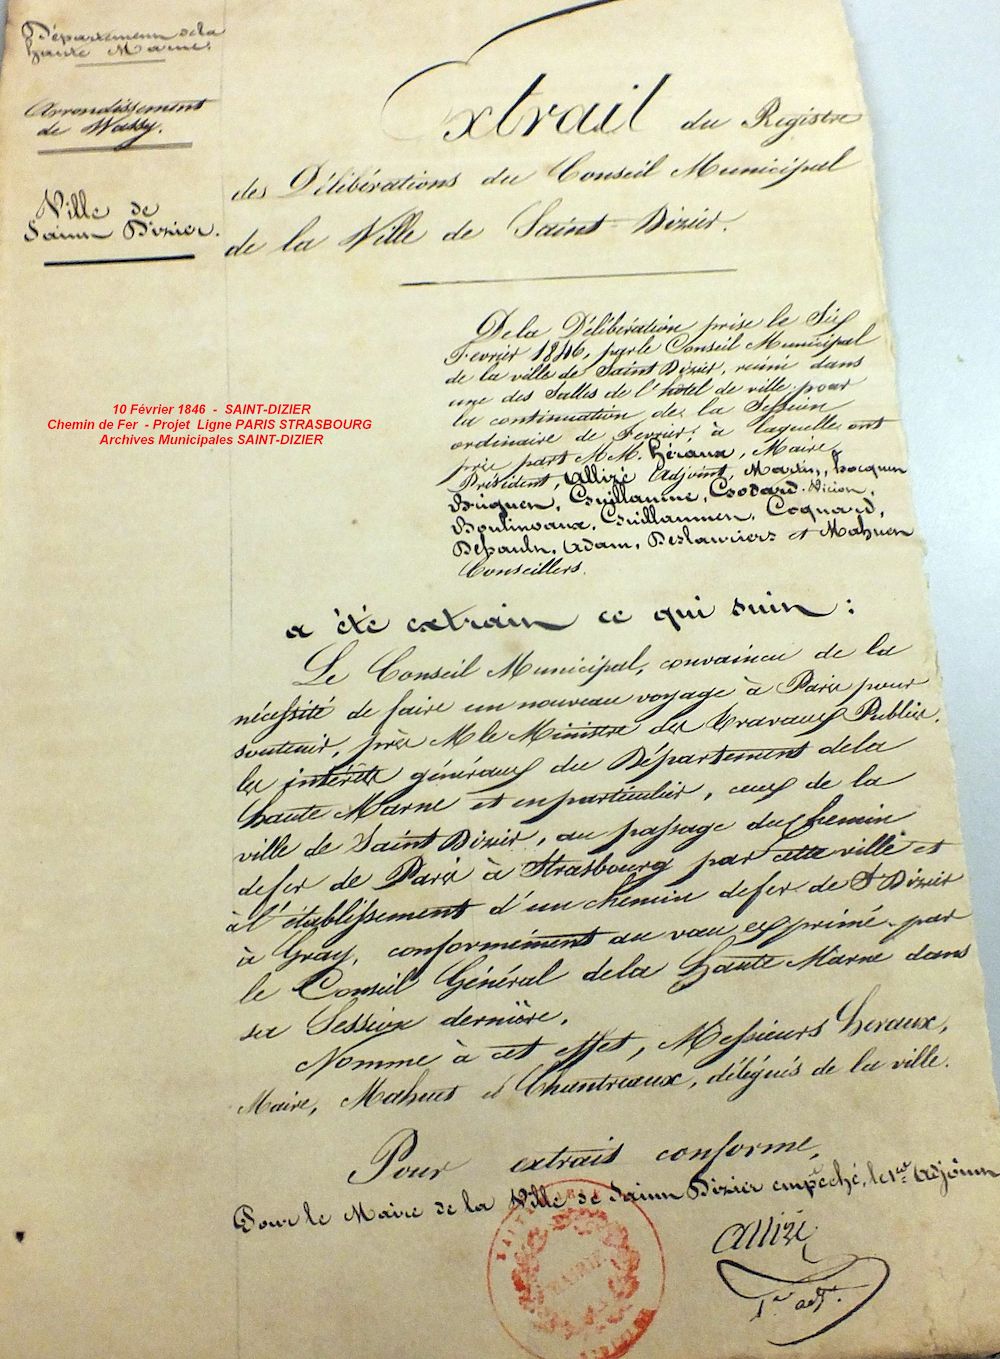 Département de la
Haute Marne
Arrondissement
de Wassy.
Ville de
Saint Dizier.
Extrait du Registre
des Délibérations du Conseil Municipal
de la Ville de Saint-Dizier.
10 Février 1846 - SAINT-DIZIER
Chemin de Fer - Projet Ligne PARIS STRASBOURG
Archives Municipales SAINT-DIZIER
De la Délibération prise le Six
Fevrier 1846, par le Conseil Municipal
de la ville de Saint Dizier, réuni dans
une des Salles de l'hôtel de ville pour
la continuation de la Session
ordinaire de Fevrier, à laquelle ont
pris part M.M. Héraux, Maire,
Président, Allizé Adjoint, Martin,
Guillaume, Godard,
Guillaumen, Coquard,
Adam, Deslauriers et Mahuen
Conseillers.
a été extrait ce qui suit :
Le Conseil Municipal, convaincu de la
nécessité de faire un nouveau voyage à Paris pour
soutenir, près M le Ministre des travaux Publics,
les intérêts généraux du Département de la
haute Marne et en particulier, ceux de la
ville de Saint Dizier, au passage du chemin
de fer de Paris à Strasbourg par cette ville et
à l'établissement d'un chemin de fer de St Dizier
à Gray, conformément au vœu exprimé par
le Conseil Général de la Haute Marne dans
sa Session dernière.
Nomme à cet effet, Messieurs heraux,
Maire, Mahuet et Chantreaux, délégués de la ville.
Pour extrait conforme,
Pour le Maire de la Ville de Saint Dizier empêché, le 1er Adjoint
Allizé
1er adj.
MAIRIE